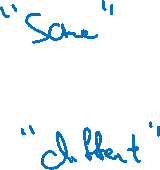 "Same"
"different"